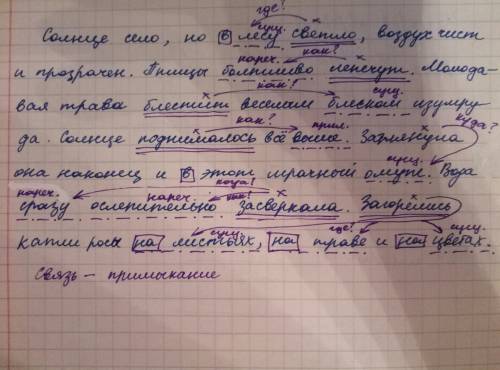 где?
сущ.
Солнце село, но в лесу светло, воздух чист
нареч. как?
и прозрачен. Птицы болтливо лепечут. Молода-
как? сущ.
вая трава блестит веселым блеском изумру-
как? прил. куда?
да. Солнце поднималось всё выше. Заглянула
сущ.
она наконец и в этот мрачный омут. Вода
нареч. нареч. когда? как?
сразу ослепительно засверкала. Загорелись
сущ. где? сущ.
капли росы на листьях, на траве и на цветах.
Связь – примыкание